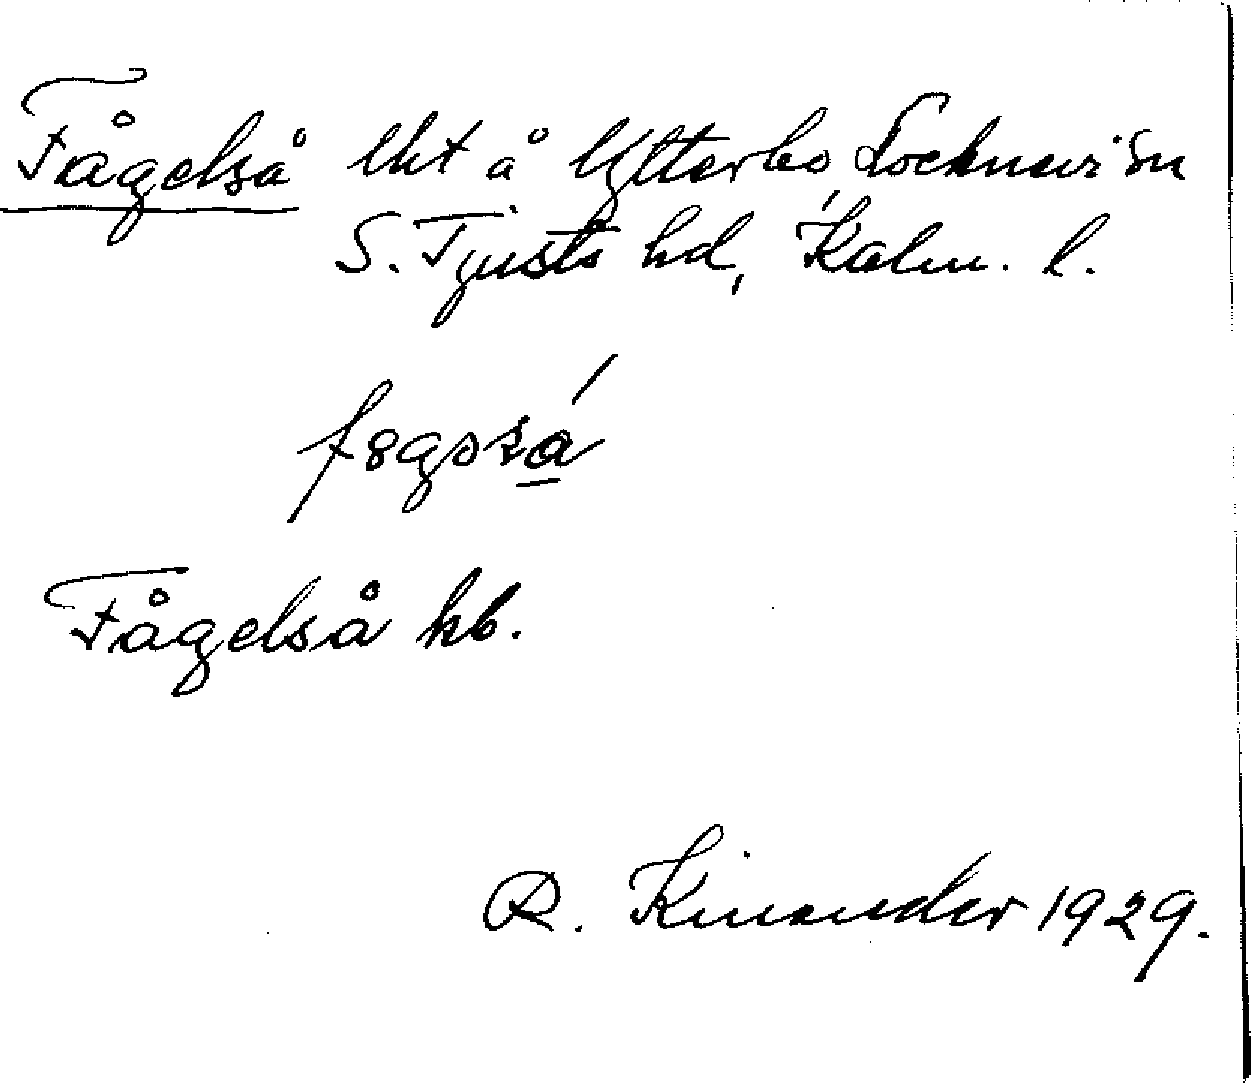 Fågelså lht å Ytterbo, Locknevi sn
S. Tjusts hd, Kalm. l.
Fågelså kb.
R. Kinander 1929.